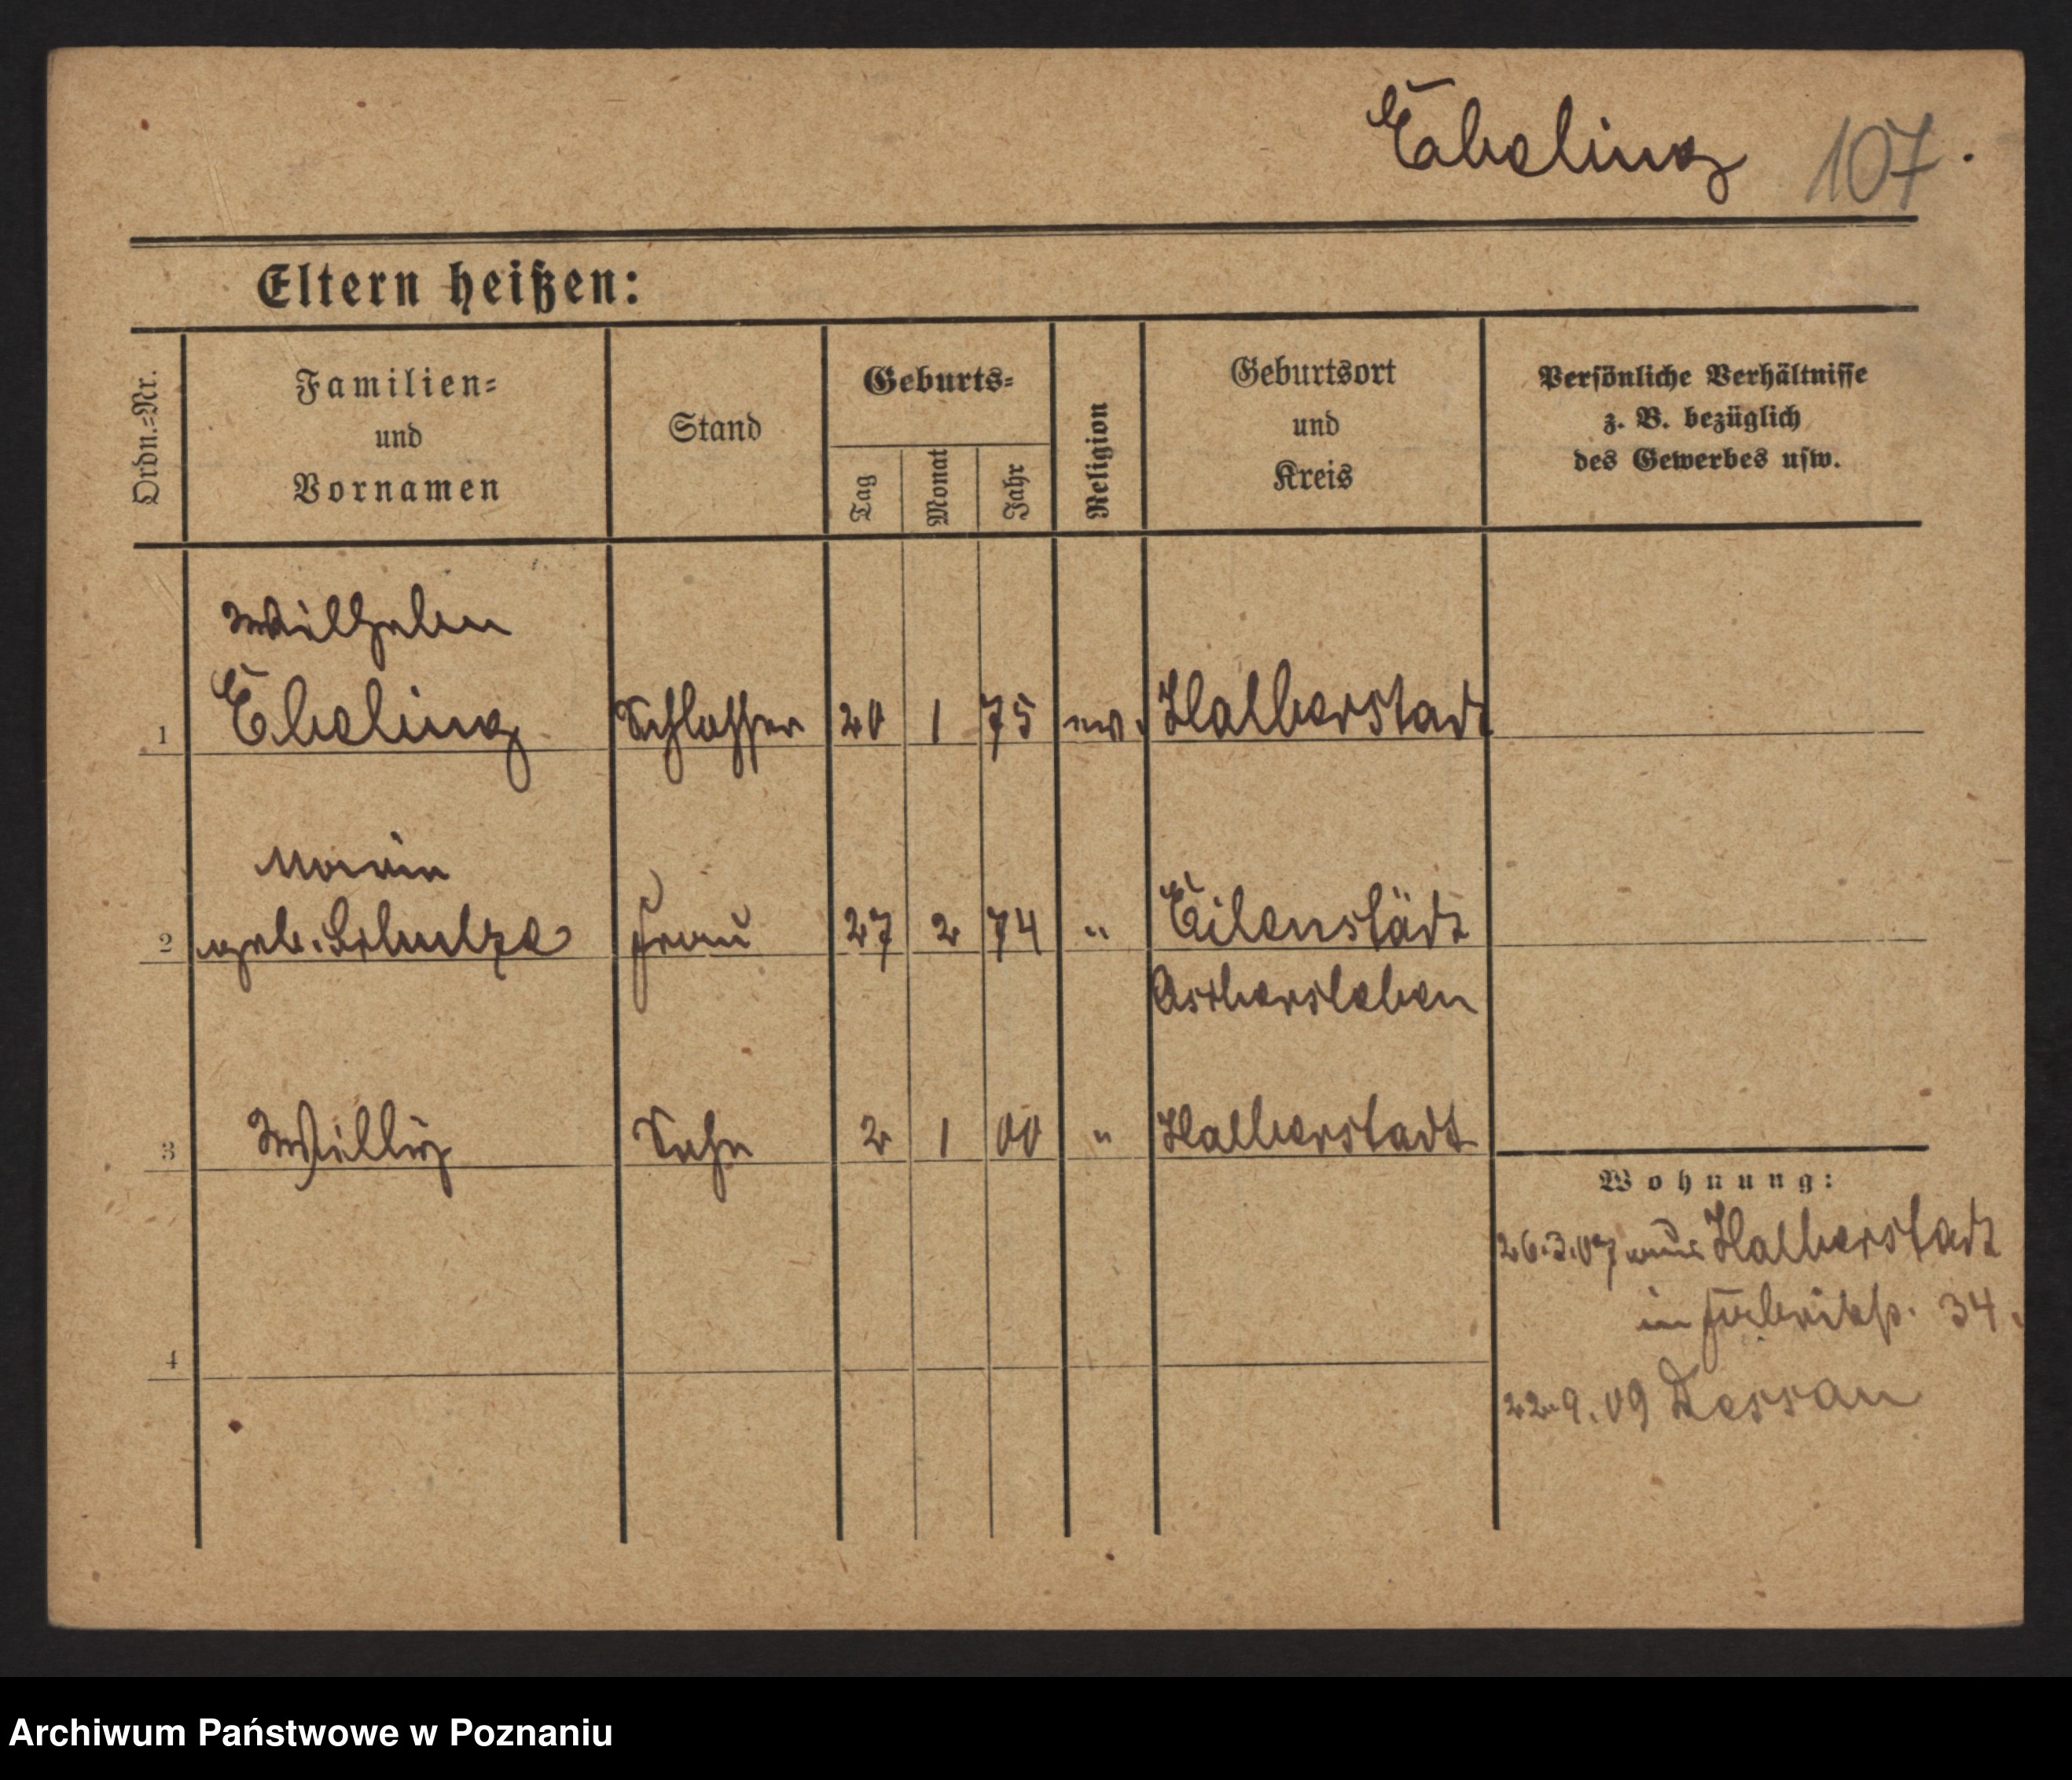 Ebeling 107.
Eltern heißen:
Ordn.=Nr.
Familien=
und
Vornamen
Stand
Geburts=
Tag
Monat
Jahr
Religion
Geburtsort
und
Kreis
Persönliche Verhältnisse
z. B. bezüglich
des Gewerbes usw.
Wilhelm
1 Ebeling Schlosser 20 1 75 ev. Halberstadt
Marie
2 geb. Schulze Frau 27 2 74 " Eilenstädt
Aschersleben
3 Willy Sohn 2 1 00 " Halberstadt
Wohnung:
26.3.07 aus Halberstadt
in Fabrikst. 34.
4
22.9.09 Dessau
Archiwum Państwowe w Poznaniu